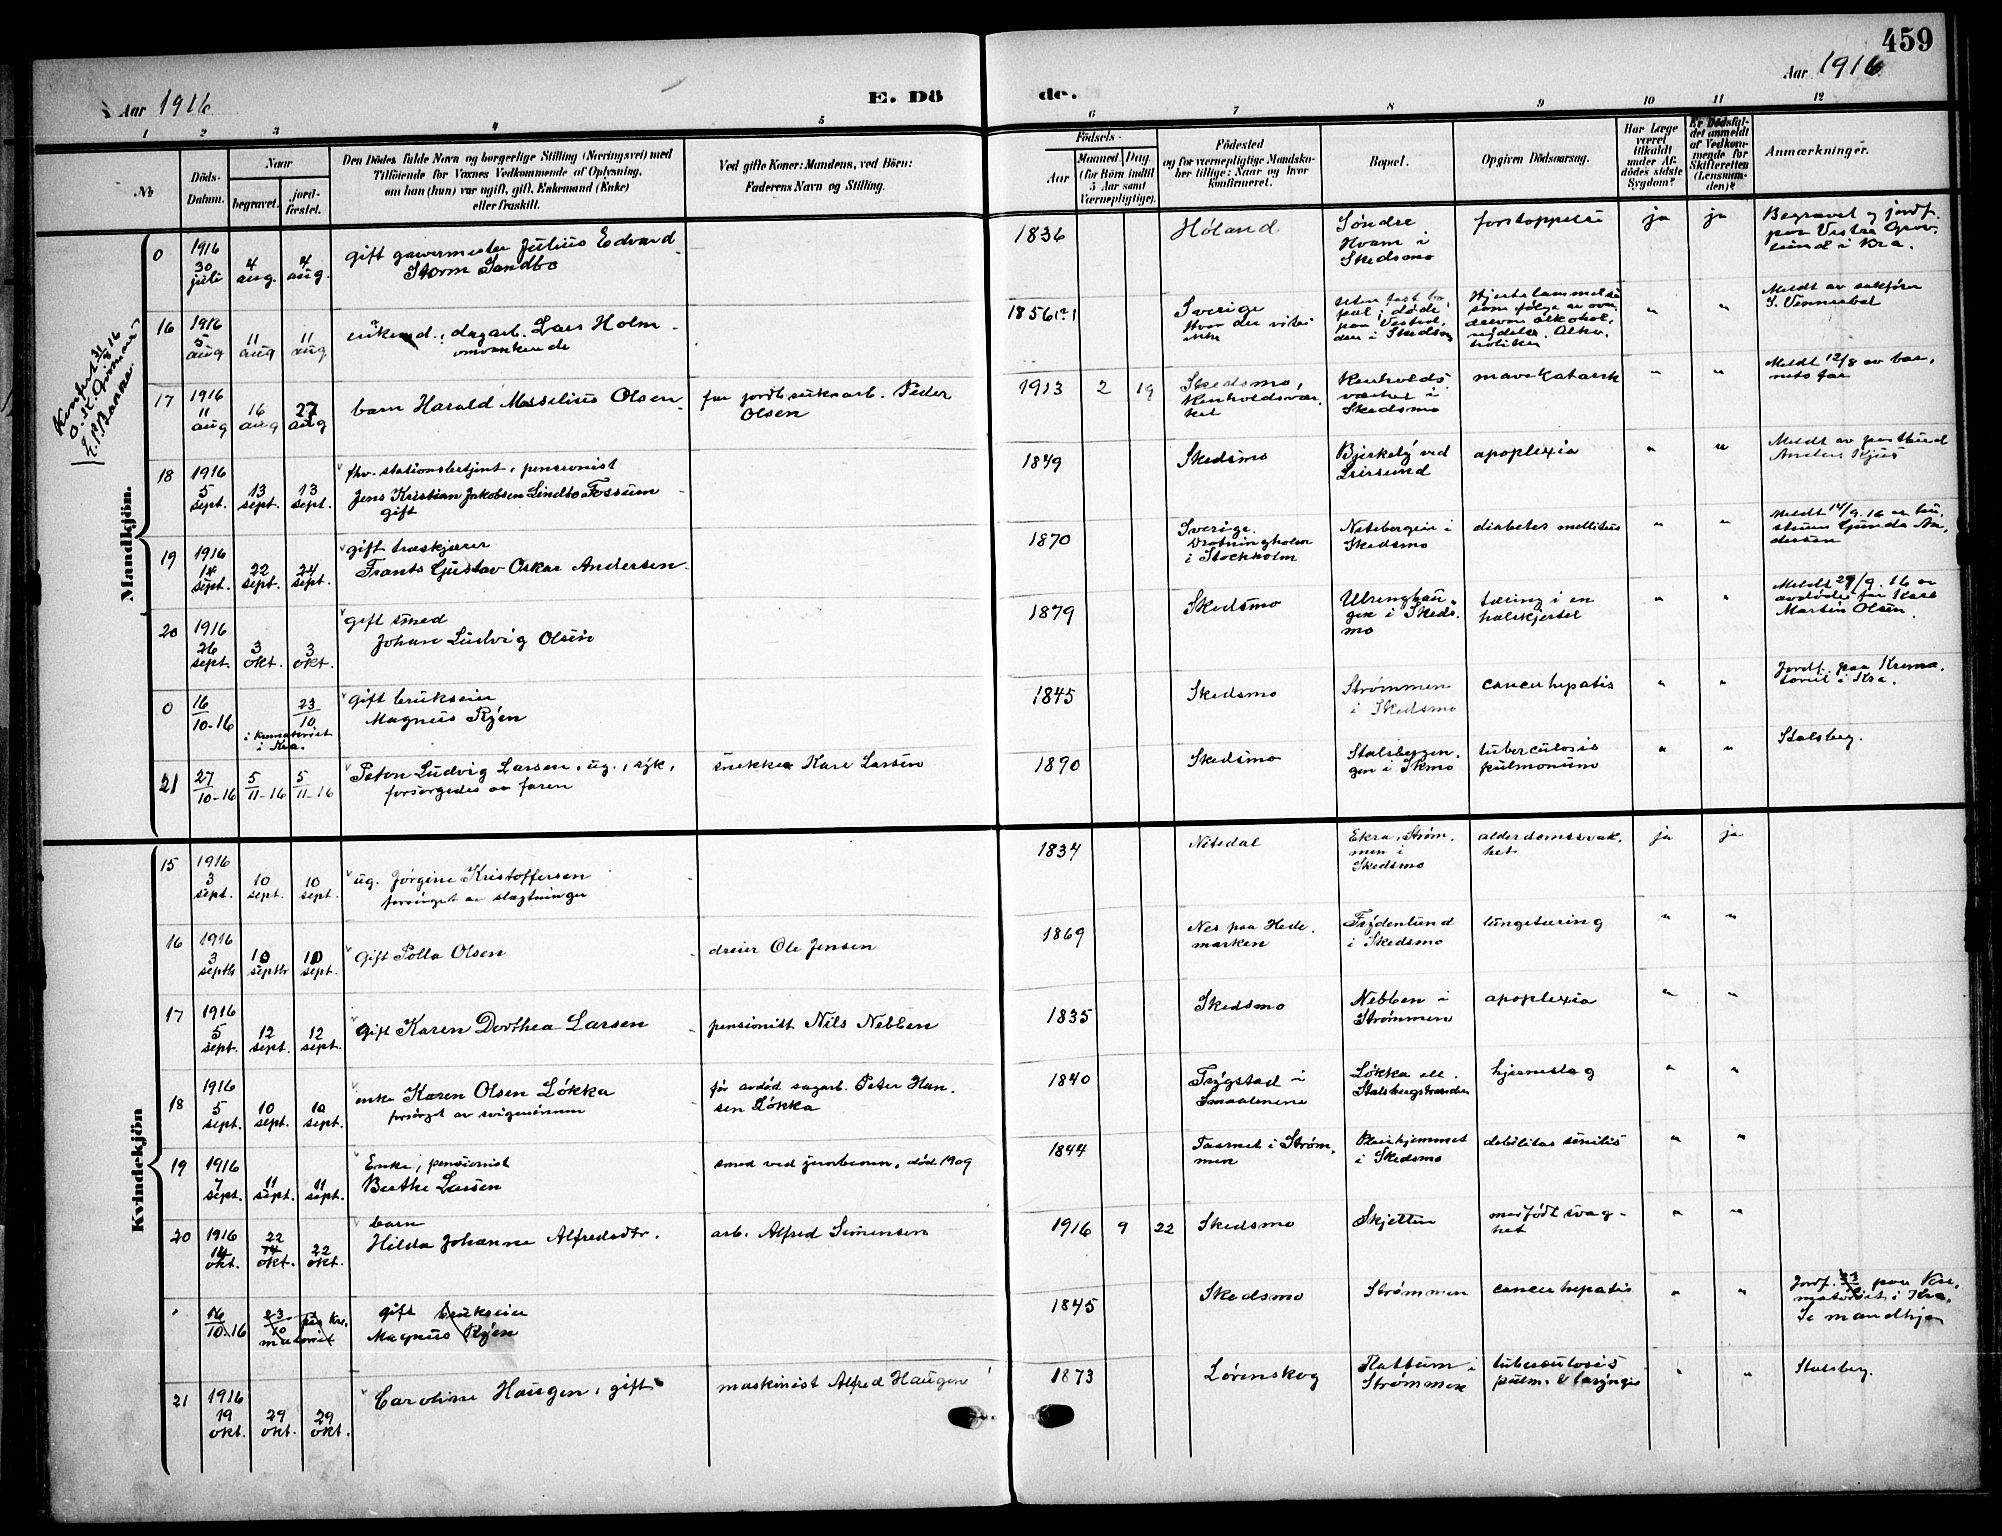 459
Aar 1916
Aar 1916
E. Dö
de.
1 2 3 4 5
6 7 8 9 10 11 12
No
Döds-Datum.
Naar
begravet.
jordfæstet.
Den Dödes fulde Navn og borgerlige Stilling (Næringsvei) med
Tilföiende for Voxnes Vedkommende af Oplysning,
om han (hun) var ugift, gift, Enkemand (Enke)
eller fraskilt.
Ved gifte Koner: Mandens, ved Börn:
Faderens Navn og Stilling.
Födsels-
Aar
Maaned Dag.
(for Börn indtil
5 Aar samt
Værnepligtige).
Födested
og for værnepligtige Mandskaber tillige: Naar og hvor
konfirmeret.
Bopæl.
Opgiven Dödsaarsag.
Har Læge
været
tilkaldt
under Afdödes sidste
Sygdom?
Er Dödsfaldet anmeldt
af Vedkommende for
Skifteretten
(Lensmanden)?
Anmærkninger.
Mandkjön.
0 1916 30 juli 4 aug. 4 aug. gift garvermester Julius Edvard
Storm Sandbo
1836 Høland Søndre
Hvam i
Skedsmo
forstoppelse ja ja Begravet og jordf.
paa Vestre Gravlund i Kra.
16 1916 5 aug 11 aug 11 aug enkem., dagarb. Lars Holm
omvankende
1856(?) Sverige
Hvor der vites
ikke
uten fast bopæl; døde
paa Vestvolden i Skedsmo
Hjertelammelse
som følge av overdreven alkoholnydelse. Alkoholiker.
" " Meldt av sakfører
S. Vennesbel
17 1916 11 aug 16 aug 27 aug barn Harald Messelius Olsen
far jordbruksarb. Peder
Olsen
1913 2 19 Skedsmo,
Kenholdsværket
Kenholdsværket i
Skedsmo
mavekatarrh " " Meldt 12/8 av barnets far
18 1916 5 sept. 13 sept. 13 sept. fhv. stationsbetjent, pensionist
Jens Kristian Jakobsen Lindbo Fossum
gift
1849 Skedsmo Bjerkely ved
Leirsund
apoplexia " " Meldt av postbud
Anders Kjus
19 1916 14 sept. 22 sept. 24 sept. gift træskjærer
Frants Gustav Oskar Andersen
1870 Sverige.
Drotningholm
i Stockholm
Nitebergen i
Skedsmo
diabetes mellitus " " Meldt 14/9.16 av hustruen Gunda Andersen
20 1916 26 sept. 3 okt. 3 okt. gift smed
Johan Ludvig Olsen
1879 Skedsmo i Skedsmo
tæring i en
halskjertel
" " Meldt 27/9.16 av
avdødes far Karl
Martin Olsen.
0 16/10-16 i krematoriet
i Kra.
23/10 gift brukseier
Magnus Ryen
1845 Skedsmo Strømmen
i Skedsmo
cancer hepatis " " Jordf. paa Krematoriet i Kra.
21 27/10-16 5/11-16 5/11-16 Peton Ludvig Larsen, ug., syk,
forsørgedes av faren
snekker Karl Larsen
1890 Skedsmo i Skmo
tuberculosis
pulmonum
" " Stalsberg.
Kvindekjön
15 1916 3 sept. 10 sept. 10 sept. ug. Jørgine Kristoffersen
forsørget av slægtninger
1834 Nitedal Ekra, Strømmen i
Skedsmo
alderdomssvakhet ja ja
16 1916 3 septb 10 septb 10 sept. Gift Polla Olsen
dreier Ole Jensen
1869 Nes paa Hedemarken
Frydenlund
i Skedsmo
lungetæring " "
17 1916 5 sept. 12 sept. 12 sept. Gift Karen Dorthea Larsen
pensionist Nils Nebben
1835 Skedsmo Nebben i
Strømmen
apoplexia " "
18 1916 5 sept. 10 sept. 10 sept. enke Karen Olsen Løkka
forsørget av svigersønnen
før avdød sagarb. Peter Hansen Løkka
1840 Trygstad i
Smaalenene
Løkka
hjerneslag " "
19 1916 7 sept. 11 sept. 11 sept. Enke, pensionist
Berthe Larsen
smed ved jernbanen, død 1909
1844 i Strømmen
Pleiehjemmet
i Skedsmo
debilitas senilis " "
20 1916 14 okt. 22 okt. 22 okt. barn
Hilda Johanne Alfredsdtr.
arb. Alfred Simensen
1916 9 22 Skedsmo Skjetten medfødt svaghet " "
16/10-16 23/10 paa Krematoriet gift brukseier
Magnus Ryen
1845 Skedsmo Strømmen cancer hepatis " " Jordf. paa Krematoriet i Kra.
Se mandkjøn
21 1916 19 okt. 29 okt. 29 okt. Caroline Haugen, gift
maskinist Alfred Haugen
1873 Lørenskog Flatbum i
Strømmen
tuberculosis
pulm. & laryngis
" " Stalsberg.